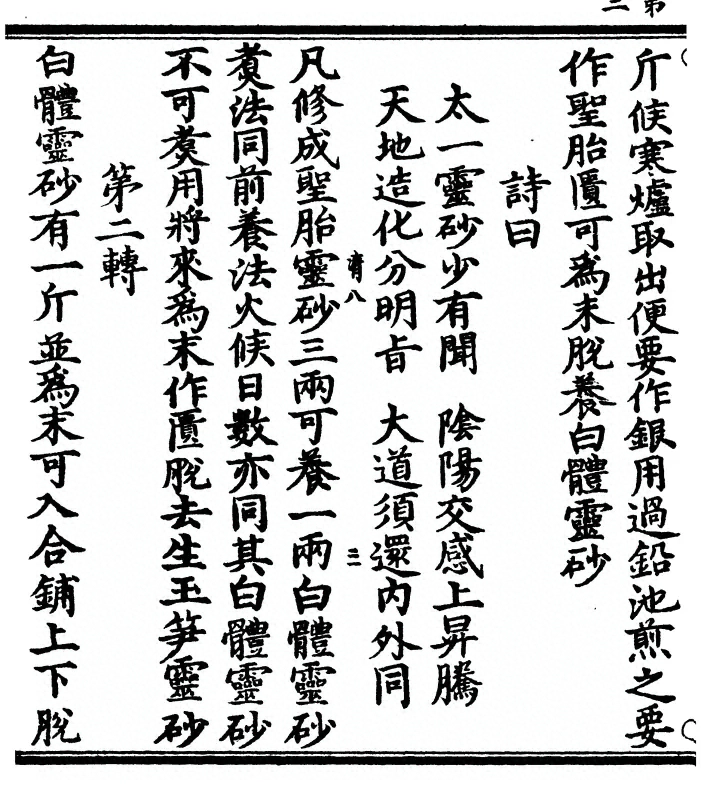 斤候寒爐取出便要作銀用過鉛池煎之要
作聖胎匱可為末脫養白體靈砂
詩曰
太一靈砂少有聞　陰陽交感上昇騰
天地造化分明旨　大道須還內外同
凡修成聖胎靈砂三兩可養一兩白體靈砂
煑法同前養法火候日數亦同其白體靈砂
不可煑用將來為末作匱脫去生玉笋靈砂
第二轉
白體靈砂有一斤並為末可入合鋪上下脫